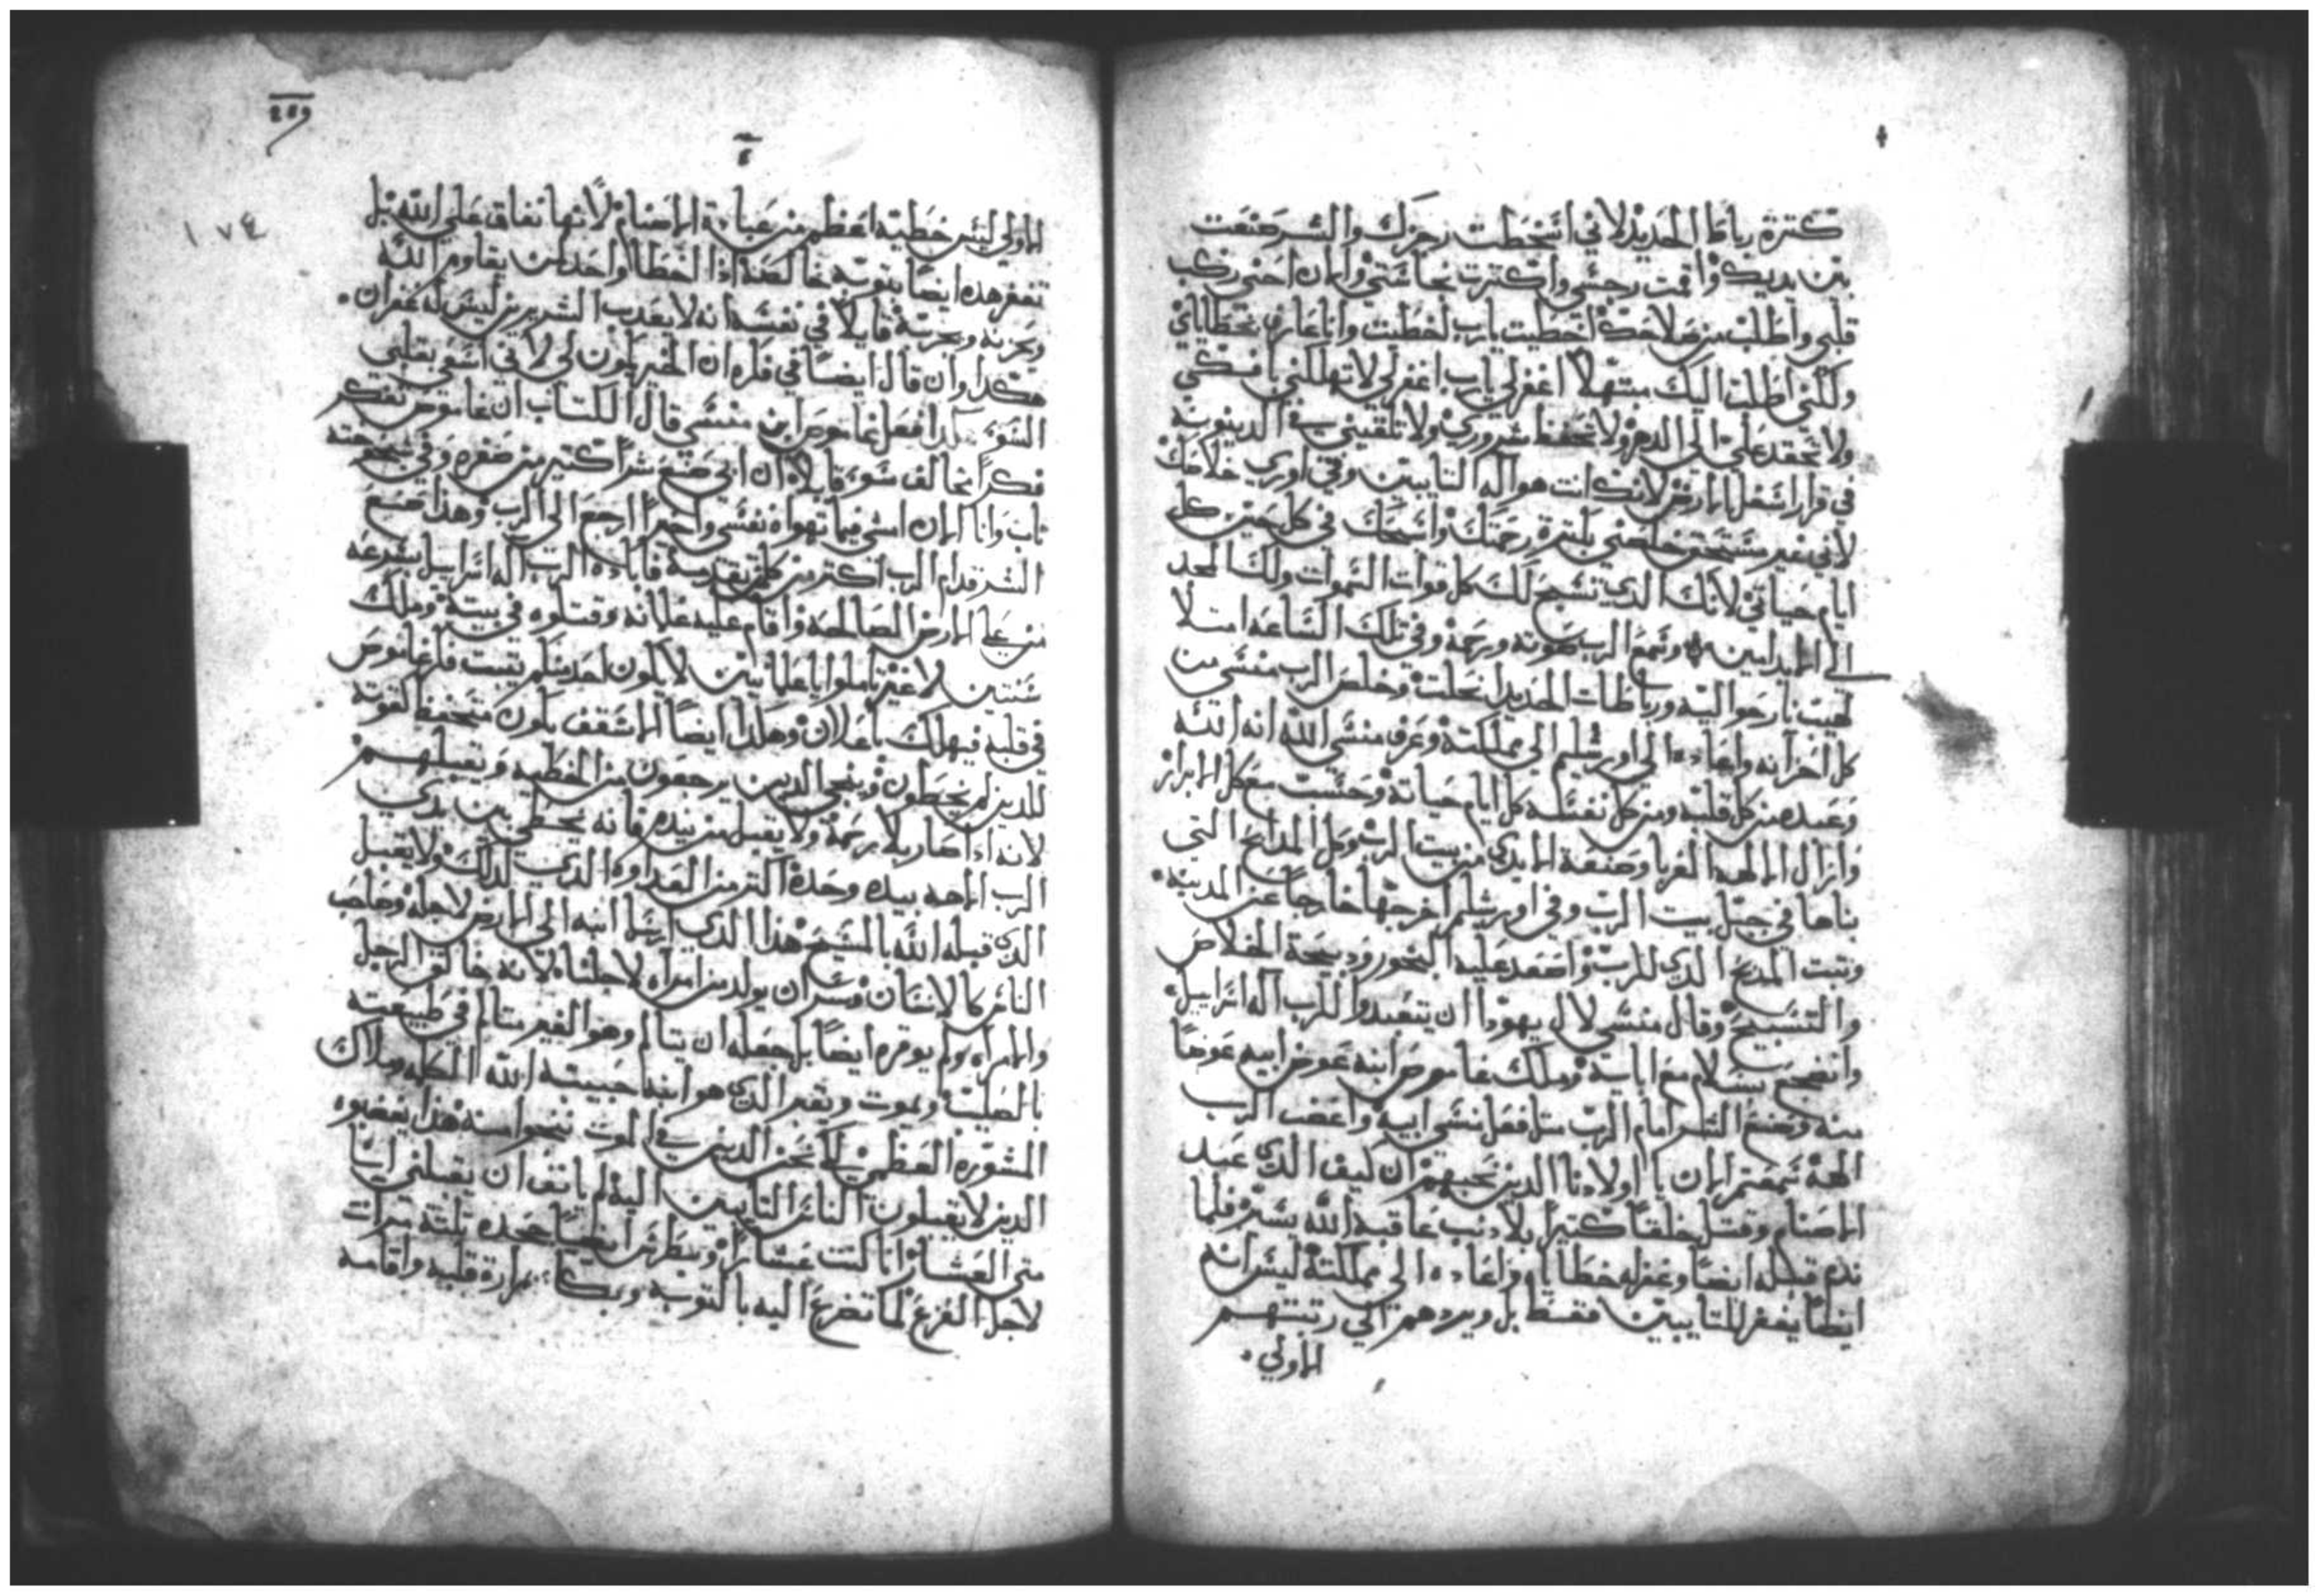 كترة رباط الحديد لاني اسخطت رجزك والشر صنعت
بين يديك واقمت رجسي واكترت نجاستي والان احني ركب
قلبي واطلب من صلاحك اخطيت يارب اخطيت وانا عارف بخطاياي
ولكني اطلب اليك مبتهلا اغفر لي يارب اغفر لي لا تهلكني بافكي
ولا تحقد علي الي الدهر ولا تحفظ شروري ولا تلقيني في الدينونة
في قرار اسفل الارض لانك انت هو اله التايبين وفي اوري خلاصك
لاني غير مستحق خلصني بكترة رحمتك واسبحك في كل حين كل
ايام حياتي لانك الذي تسبح لك كل قوات السموات ولك المجد
الي الابد امين وسمع الرب صوته ورحمه وفي تلك الساعه امتلا
لهيب نار حواليه ورباطات الحديد انحلت وخلص الرب منسي من
كل احزانه واعاده الي اورشليم الي مملكته وعرف منسي الله انه الله
وعبده من كل قلبه ومن كل نفسه كل ايام حياته وحسب مع كل الابرار
وازال الالهه الغربا وصنعة الايدي من بيت الرب وكل المدابح التي
بناها في جبل بيت الرب وفي اورشليم اخرجها خارجا عن المدينه
وتبت المدبح الذي للرب واصعد عليه البخور ودبيحة الخلاص
والتسبيح وقال منسي لال يهودا ان يتعبدوا للرب اله اسراييل
واضجع بسلام مع اباية وملك غاموص ابنه عوض ابيه عوضا
منه وصنع الشر امام الرب متل فعل منسي ابيه واغضب الرب
الهه سمعتم الان يا اولادنا الدين نحبهم ان كيف الدي عبد
الاصنام وقتل خلقا كتيرا بلا دنب عاقبه الله بشر فلما
ندم قبله ايضا وغفر له خطاياه واعاده الي مملكته ليس انه
ايضا يغفر للتايبين فقط بل ويردهم الي رتبتهم
الاولي
١٧٤
الاولي ليس خطية اعظم من عبادة الاصنام لانها نفاق علي الله بل
تغفر هده ايضا بتوبه خالصه اذا اخطا واحد لمن يقاوم الله
ويحزنه ويجربه قايلا في نفسه انه لا يعدب الشريرين ليس له غفران
هكدا وان قال ايضا في فكره ان الخير يكون لي لاني اسعي بقلبي
السوء هكدا فعل غاموص ابن منسي قال الكتاب ان غاموص تفكر
فكرا مخالف سوء قايلا ان ابي صنع شرا كتير من صغره وفي شيخوخته
تاب وانا الان امشي فيما تهواه نفسي واخيرا ارجع الي الرب وهذا صنع
الشر قدام الرب اكتر من كلمن تقدمه فاباده الرب اله اسراييل بسرعه
من علي الارض الصالحه واقام عليه غلمانه وقتلوه في بيته وملك
سنتين لا غير تاملوا يا علمانيين لا يكون احد منكم يتبت فكر غاموص
في قلبه فيهلك باعلان وهكدا ايضا الاسقف يكون متحفظا لقوته
للدين لم يخطون وينجي الدين يرجعون من الخطيه ويقبلهم
لانه ادا صار بلا رحمة ولا يقبل من بيده فانه يخطي بين يدي
الرب الاهه بيده وحده اكتر من العداوه الدي لدلك ولا يقبل
الدي قبله الله بالمسيح هذا الدي ارسل ابنه الي الارض لاجله وصاحب
الناس كالانسان وسر ان يولد من امراه لاجلنا لانه خالق الرجل
والامراه ولم يوقره ايضا بل جعله ان يتالم وهو الغير متالم في طبيعته
بالصليب ويموت ويقبر الدي هو ابنه حبيبه الله الكلمه وملاك
المشوره العظمي لكي نحن الدين في الموت ننجوا منه هذا يغضبوه
الدين لا يقبلون الناس التايبين اليه لم يانف ان يقبلني انا
متي العشار انا كنت عشارا وبطرس ايضا جحده تلتة مرات
لاجل الفزع لما تضرع اليه بالتوبه وبكا بمرارة قلبه واقامه